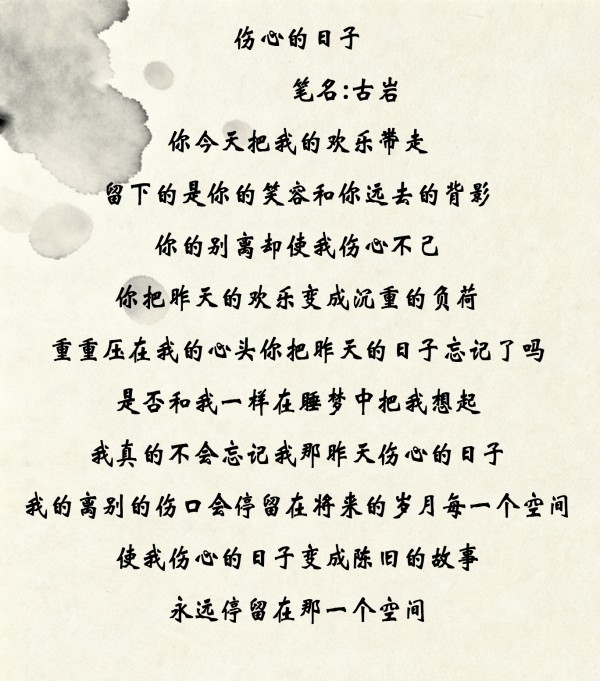 伤心的日子
笔名:古岩
你今天把我的欢乐带走
留下的是你的笑容和你远去的背影
你的别离却使我伤心不己
你把昨天的欢乐变成沉重的负荷
重重压在我的心头你把昨天的日子忘记了吗
是否和我一样在睡梦中把我想起
我真的不会忘记我那昨天伤心的日子
我的离别的伤口会停留在将来的岁月每一个空间
使我伤心的日子变成陈旧的故事
永远停留在那一个空间